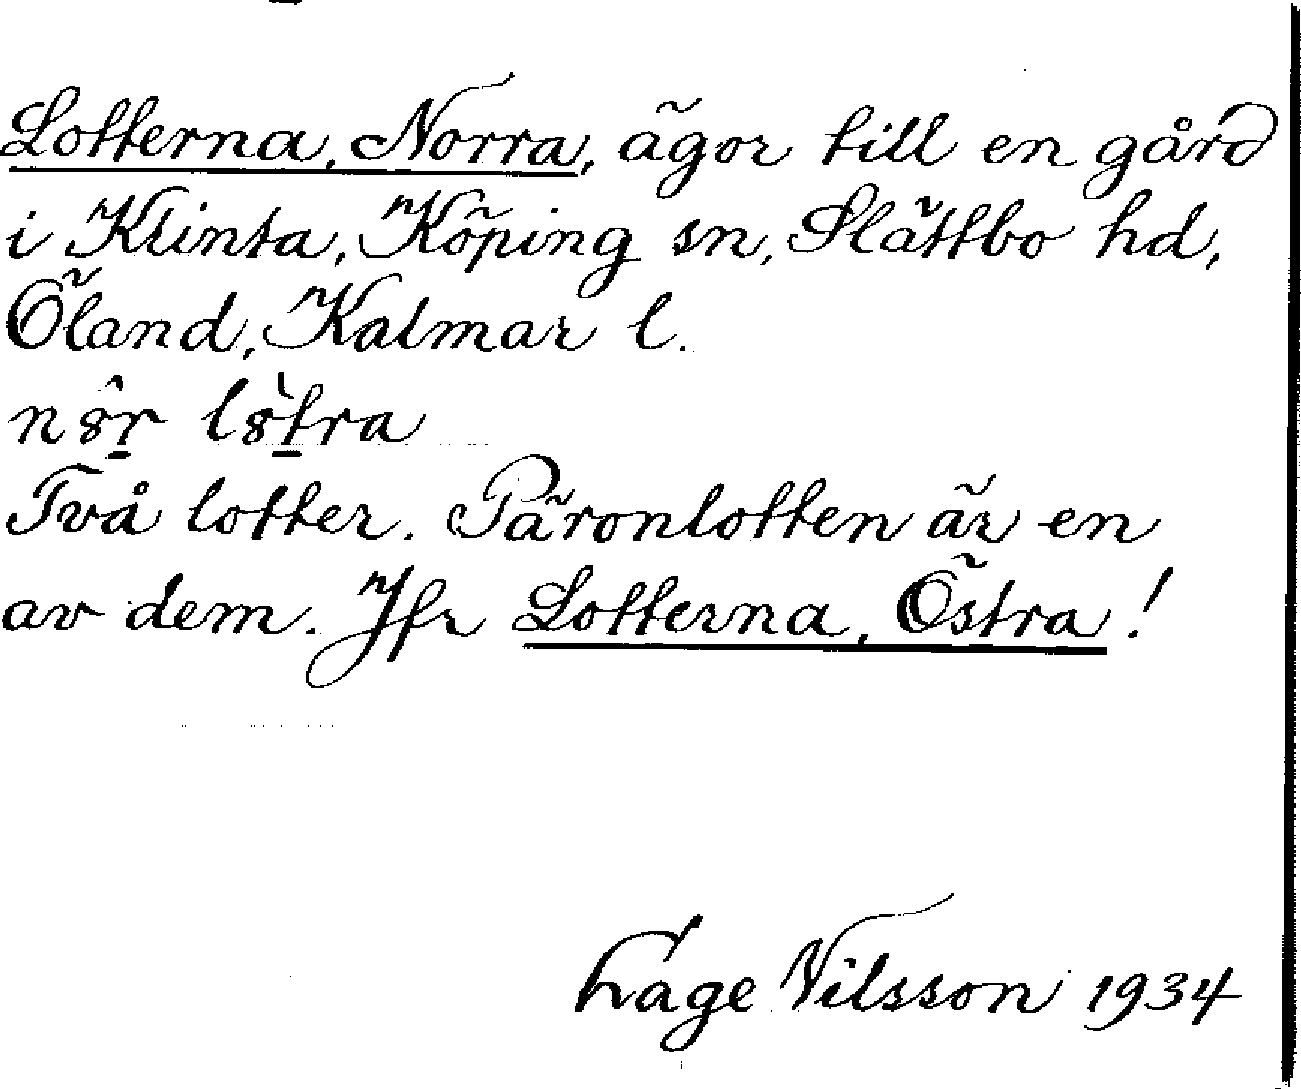 Lotterna, Norra, ägor till en gård
i Klinta, Köping sn, Slättbo hd,
Öland, Kalmar l.
Två lotter. Päronlotten är en
av dem. Jfr Lotterna, Östra!
Låge Nilsson 1934